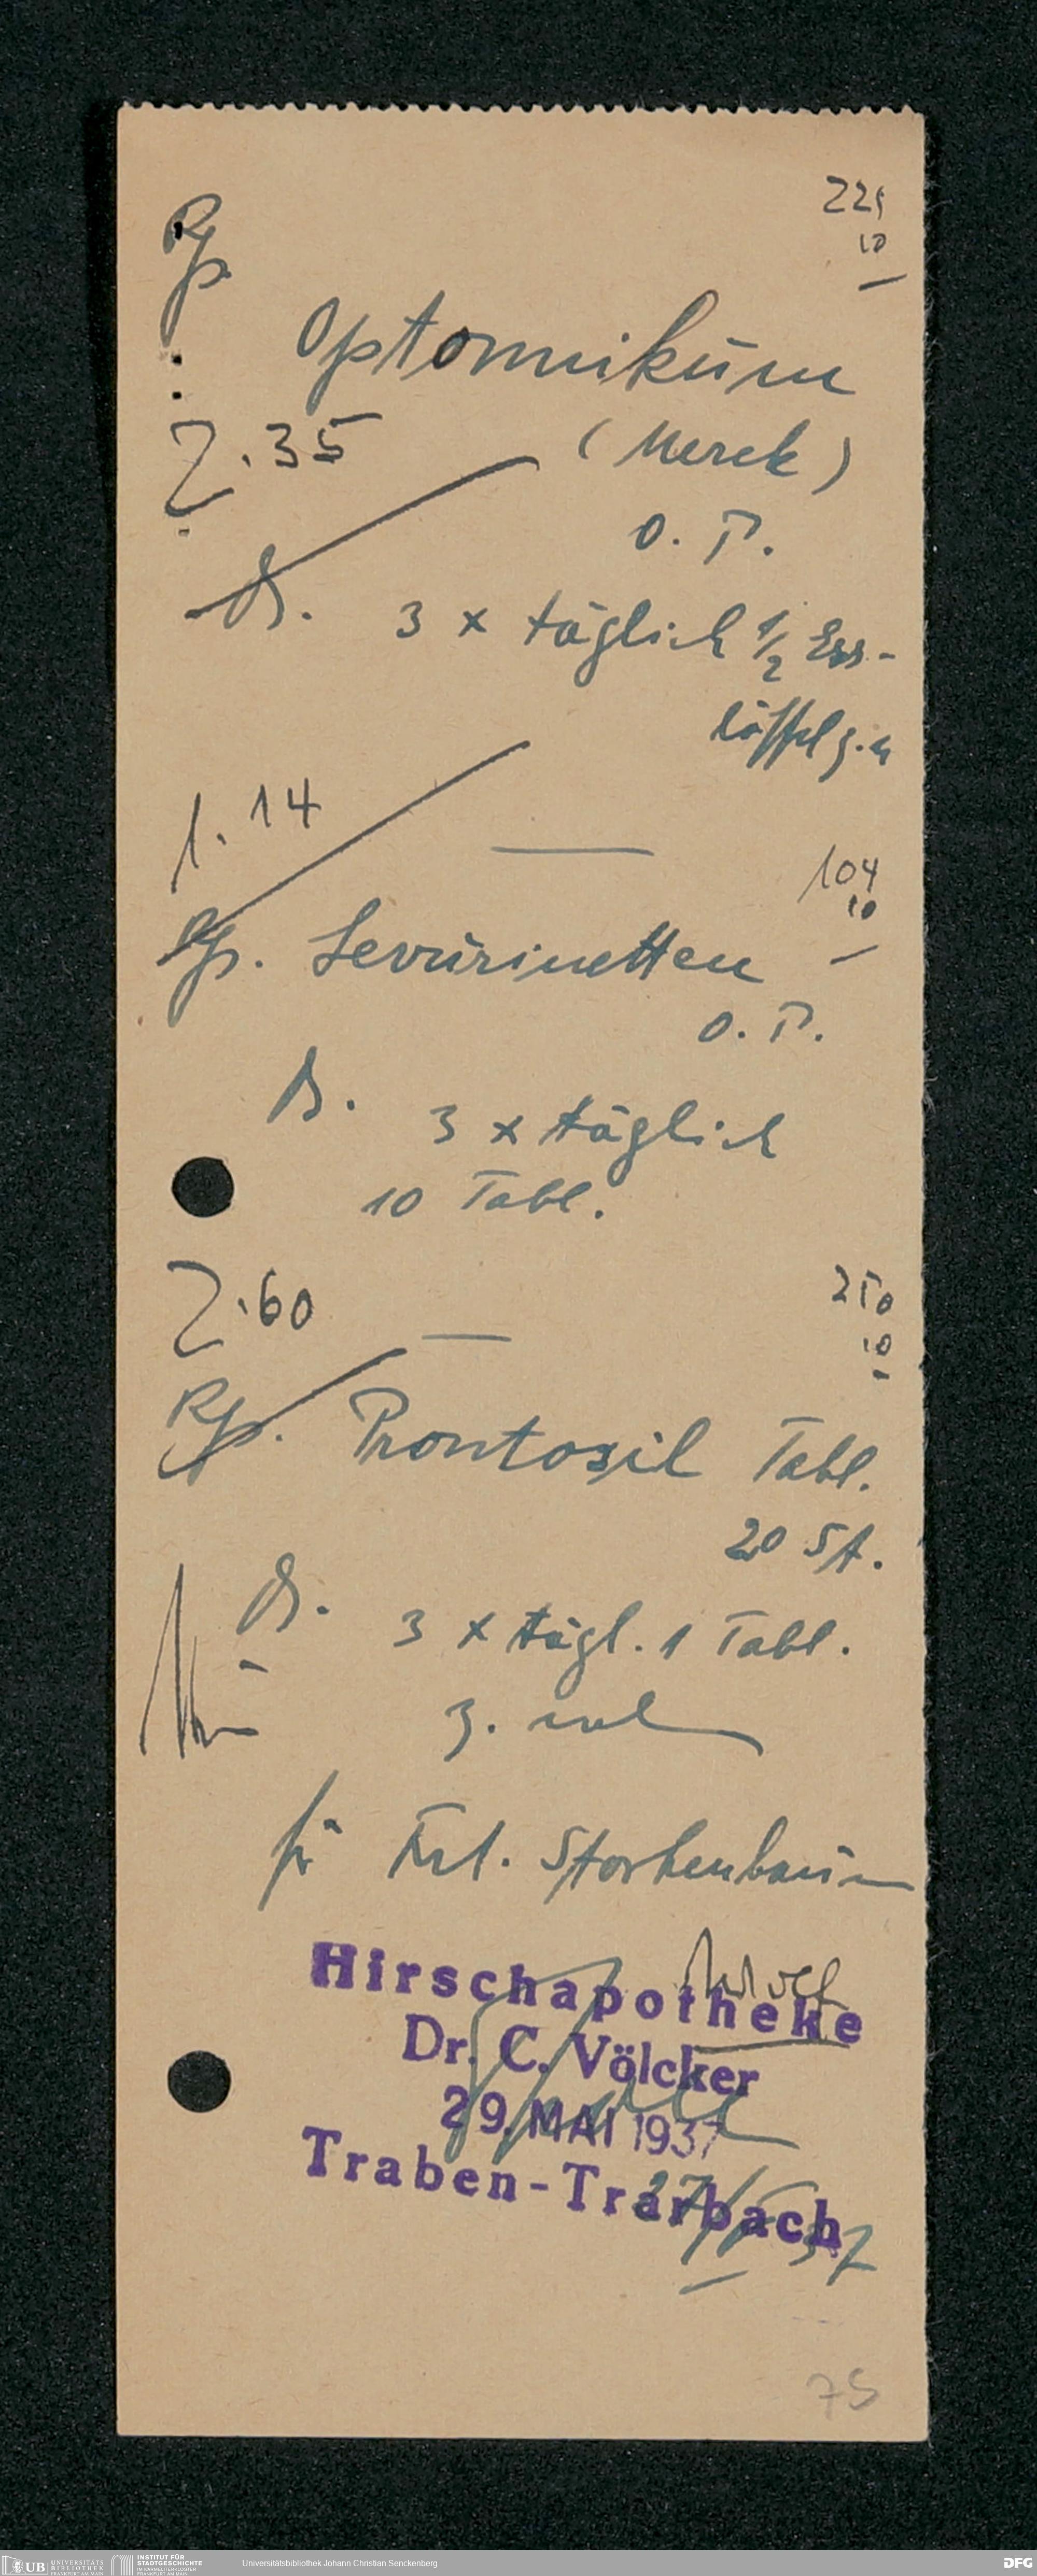 Rp.
225
10
Optonnikum
2.35
(Merck)
O. P.
S. 3 x täglich 1/2 Ess-
löffel z. n
1.14
104
10
Rp. Levurinetten
O. P.
S. 3 x täglich
10 Tabl.
2.60
250
10
Rp. Prontosil Tabl.
20 St.
S. 3 x tägl. 1 Tabl.
für Frl. Storkenbaum
Hirschapotheke
Dr. C. Völcker
29. MAI 1937
Traben-Trarbach
27/5 37
75
UB UNIVERSITÄTS
BIBLIOTHEK
FRANKFURT AM MAIN
INSTITUT FÜR
STADTGESCHICHTE
IM KARMELITERKLOSTER
FRANKFURT AM MAIN
Universitätsbibliothek Johann Christian Senckenberg
DFG